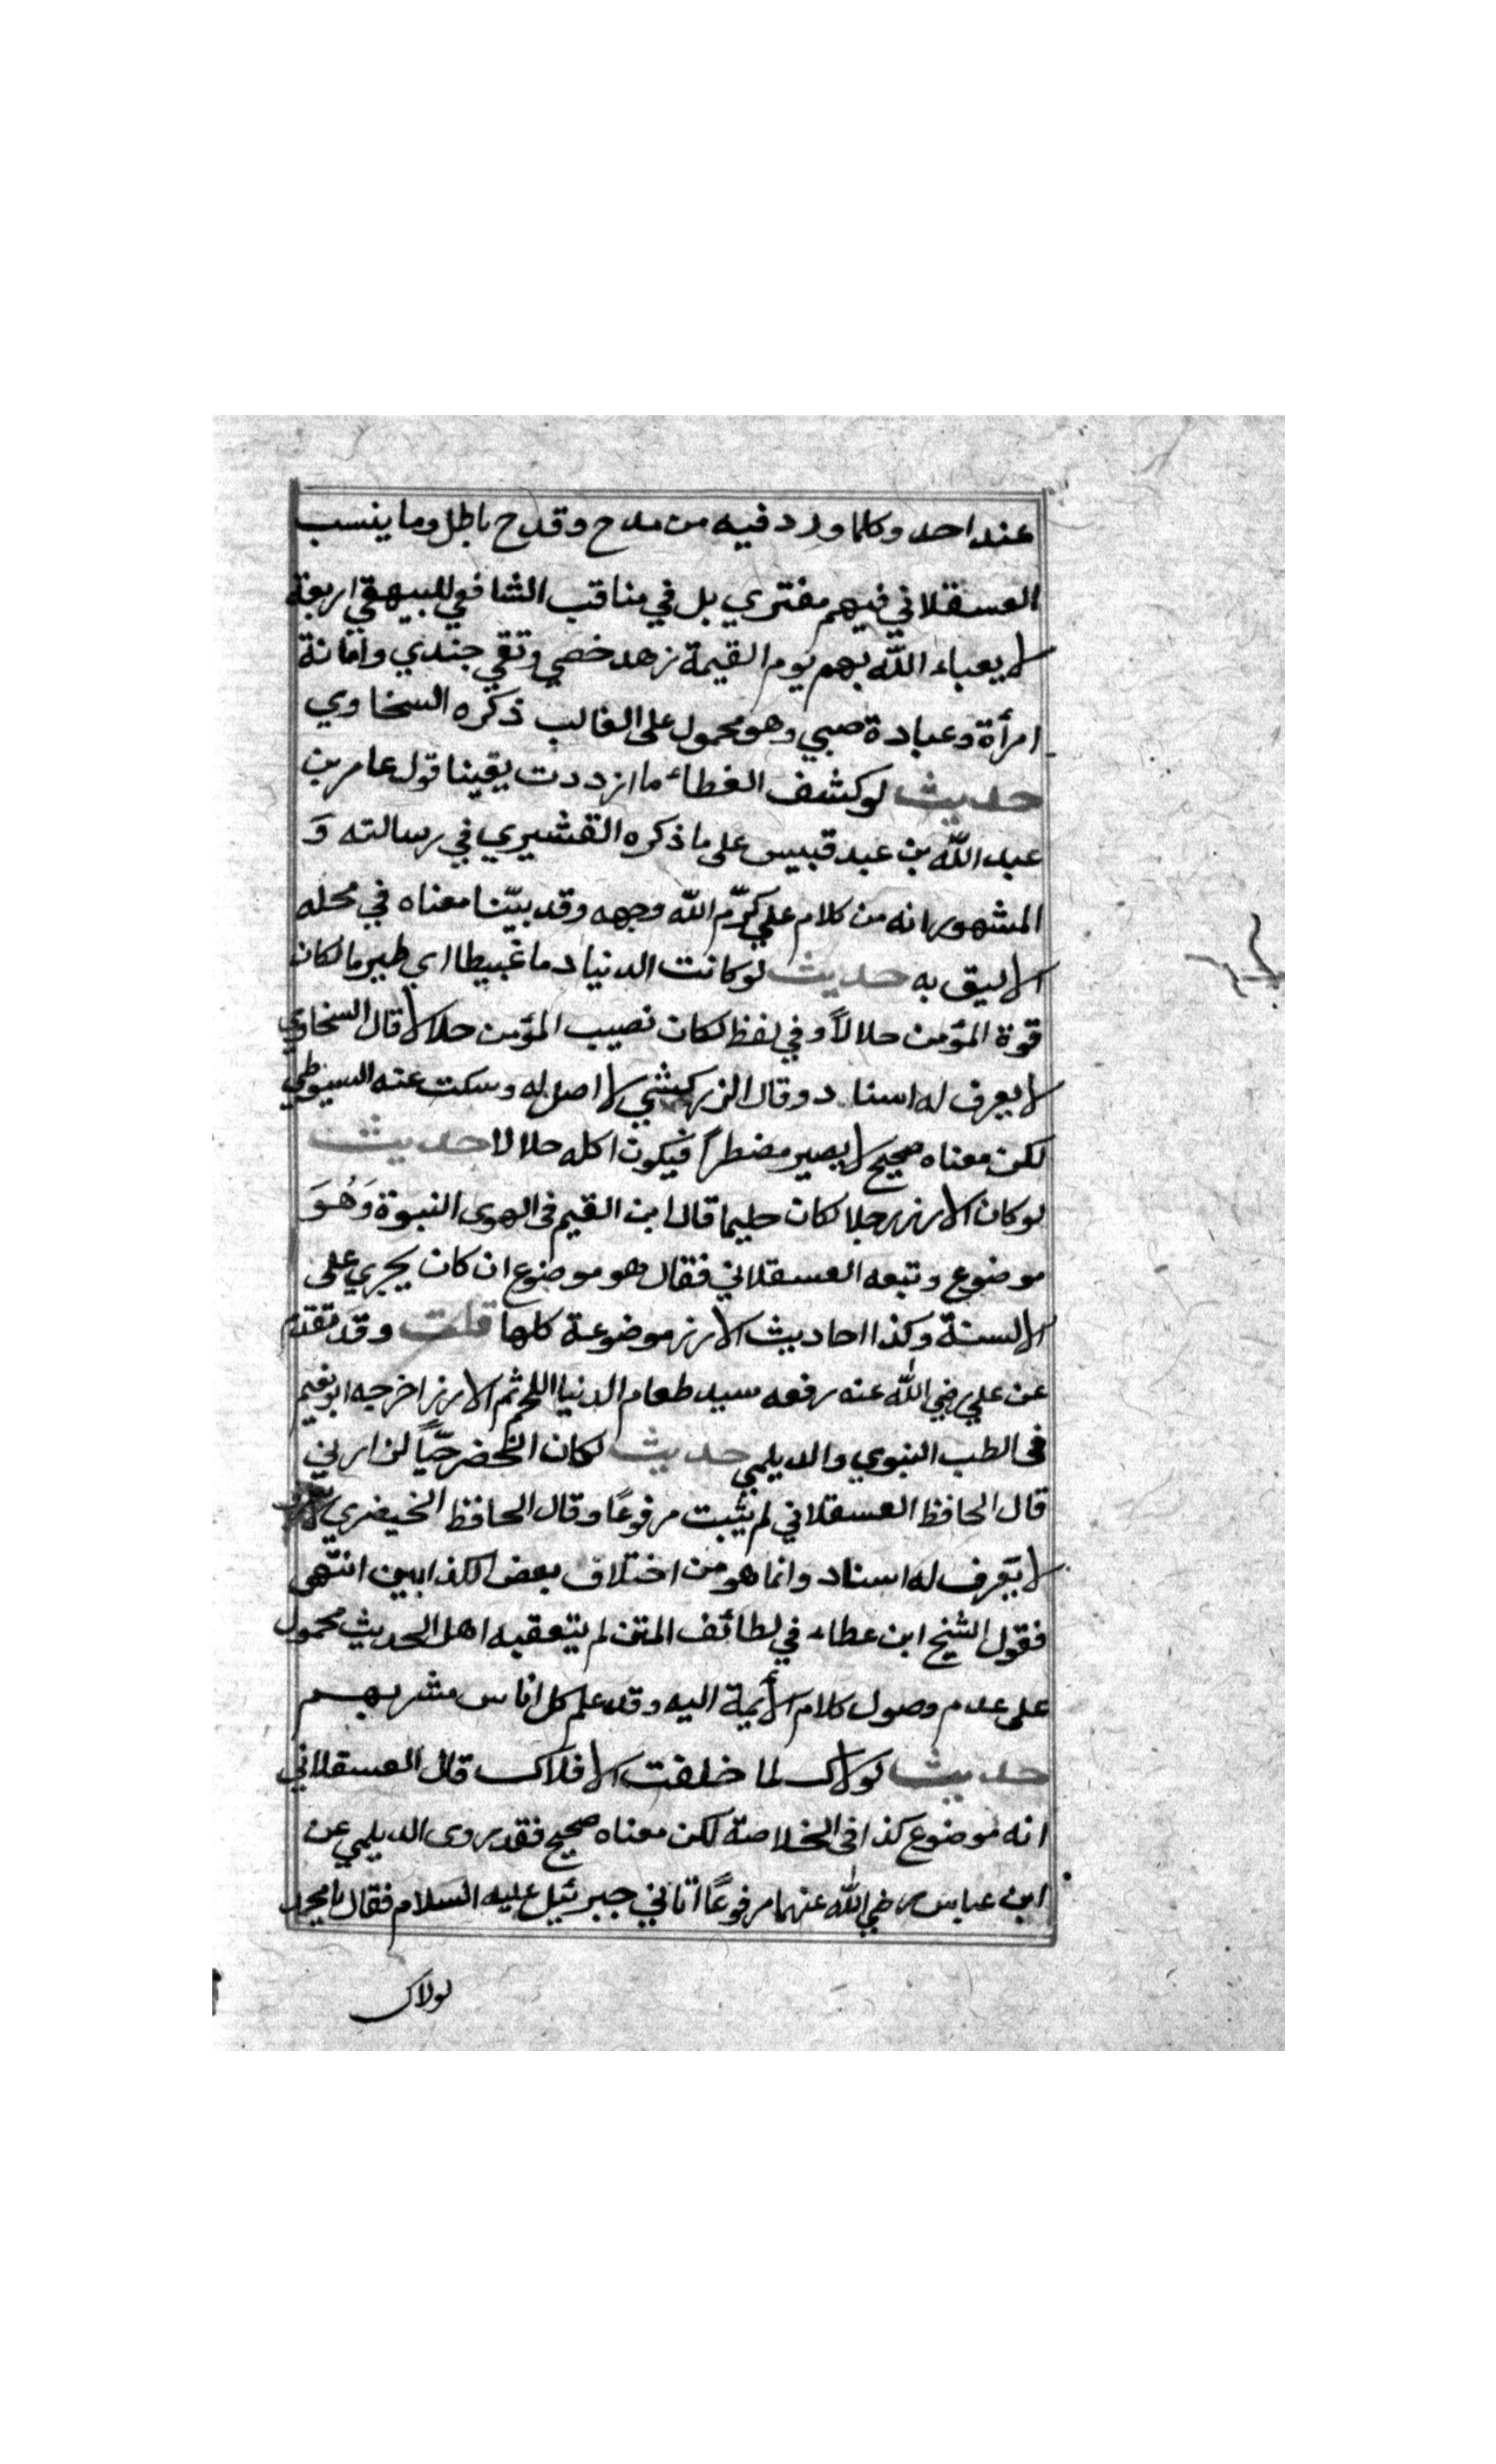 عند احد وكلما ورد فيه من مدح وقدح باطل وما ينسب
العسقلاني فيهم مفتري بل في مناقب الشافعي للبيهقي اربعة
لا يعباء الله بهم يوم القيمة زهد خصي وتقي جندي وامانة
امرأة وعبادة صبي وهو محمول على الغالب ذكره السخاوي
حديث لو كشف الغطاء ما ازددت يقينا قول عامر بن
عبد الله بن عبد قبيس على ما ذكره القشيري في رسالته وَ
المشهور انه من كلام علي كرّم الله وجهه وقد بيّنا معناه في محله
الاليق به حديث لو كانت الدنيا دما غبيطا اي طبريا لكان
قوة المؤمن حلالاً وفي لفظ لكان نصيب المؤمن حلالا قال السخاوي
لا يعرف له اسناد وقال الزركشي لا اصل له وسكت عنه السيوطي
لكن معناه صحيح لا يصير مضطراً فيكون اكله حلالا حديث
لو كان الارز رجلا لكان حليما قال ابن القيم في الهدى النبوة وَهُوَ
موضوع وتبعه العسقلاني فقال هو موضوع ان كان يجري على
الالسنة وكذا احاديث الارز موضوعة كلها قلت وقد تقدم
عن علي رضي الله عنه رفعه سيد طعام الدنيا اللحم ثم الارز اخرجه ابو نعيم
في الطب النبوي والديلمي حديث لو كان الخضر حيّاً لزارني
قال الحافظ العسقلاني لم يثبت مرفوعًا وقال الحافظ الخيضري
لا يعرف له اسناد وانما هو من اختلاق بعض الكذابين انتهى
فقول الشيخ ابن عطاء في لطائف المتن لم يتعقبه اهل الحديث محمول
على عدم وصول كلام الأيمة اليه وقد علم كل اناس مشربهم
حديث لولاك لما خلقت الافلاك قال العسقلاني
انه موضوع كذا في الخلاصة لكن معناه صحيح فقد روى الديلمي عن
ابن عباس رضي الله عنهما مرفوعًا اتاني جبرئيل عليه السلام فقال يا محمد
لولاك